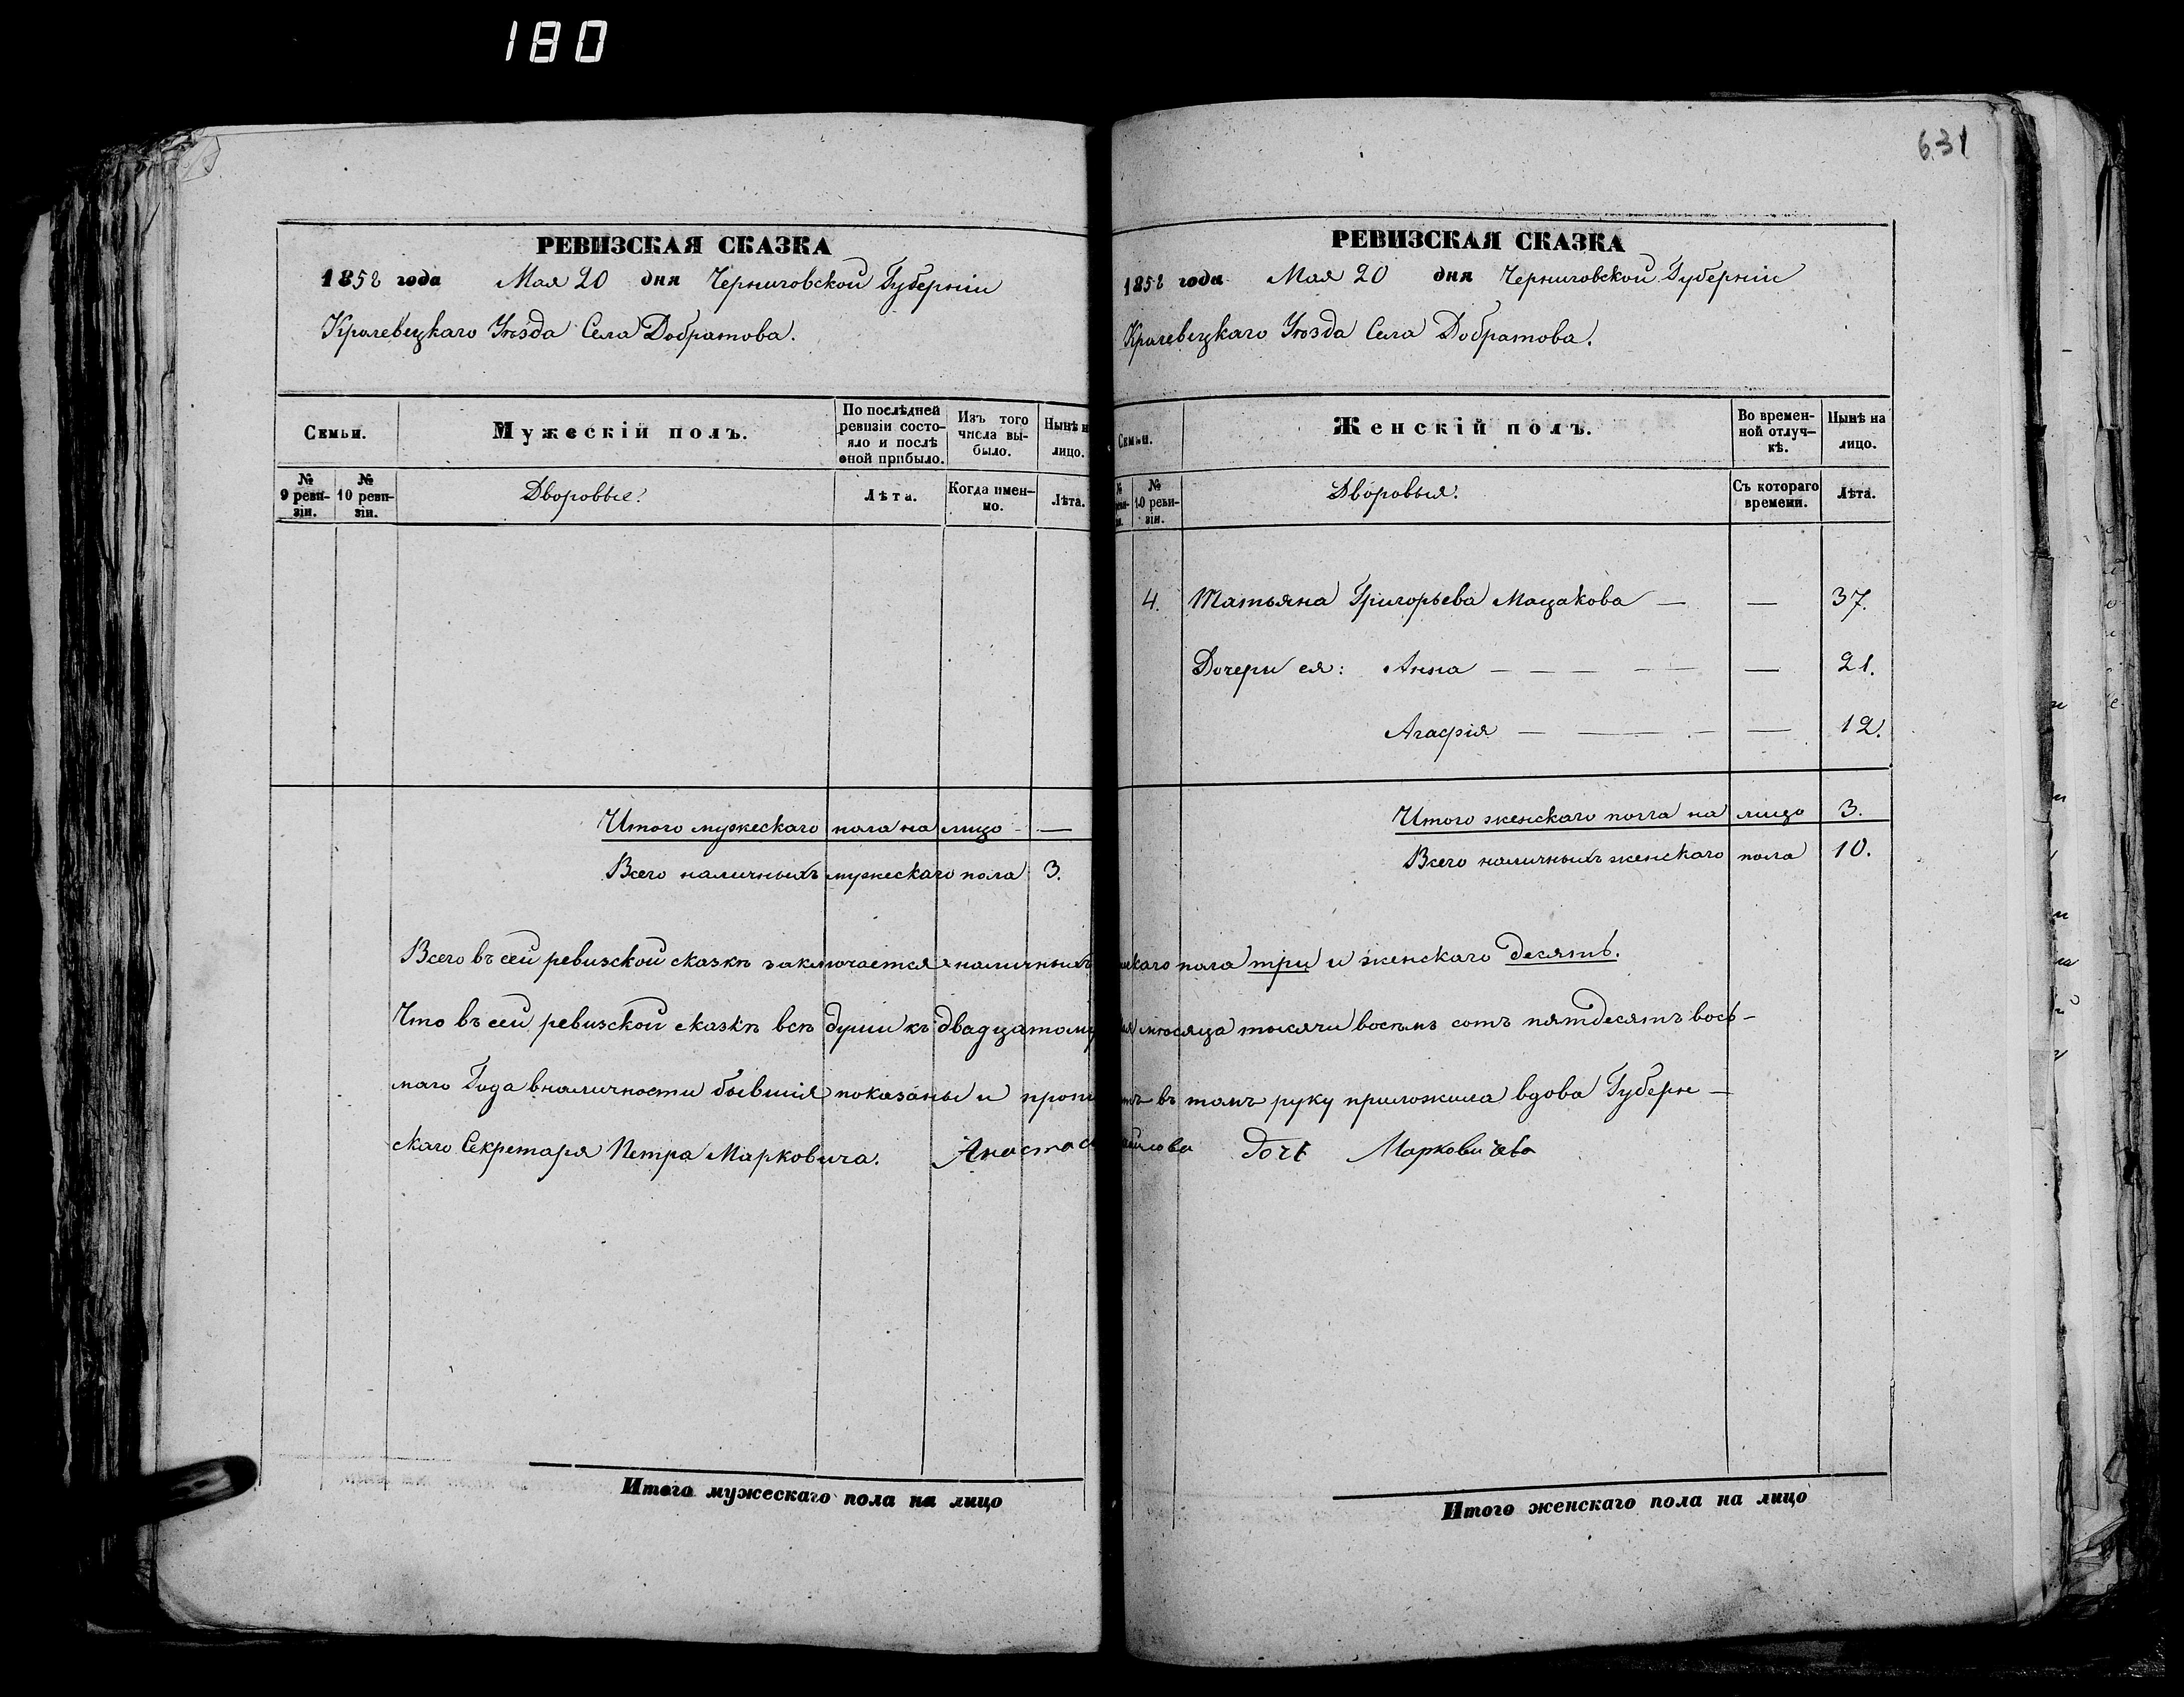 180
631
РЕВИЗСКАЯ СКАЗКА
1858 года Мая 20 дня Черниговской Губерніи
Кролевецкаго Уѣзда Села Добратова.
Семьи.
Мужескій полъ.
По послѣдней ревизіи состояло и послѣ оной прибыло.
Изъ того числа выбыло.
Нынѣ н
лицо.
№ 9 ревизіи.
№ 10 ревизіи.
Дворовые:
Лѣта.
Когда именно.
Лѣта.
Итого мужескаго пола на лицо — —
Всего наличныхъ мужескаго пола 3.
РЕВИЗСКАЯ СКАЗКА
1858 года Мая 20 дня Черниговской Губерніи
Кролевецкаго Уѣзда Села Добратова.
Семьи.
Женскій полъ.
Во временной отлучкѣ.
Нынѣ на лицо.
№ 10 ревизіи.
Дворовыя:
Съ котораго времени.
Лѣта.
4. Татьяна Григорьева Мацакова — — 37.
Дочери ея: Анна — — — — — — 21.
Агафія — — — — — — 12.
Итого женскаго пола на лицо 3.
Всего наличныхъ женскаго пола 10.
Всего въ сей ревизской сказкѣ заключается наличныхъ скаго пола три и женскаго десять.
Что въ сей ревизской сказкѣ всѣ души къ двадцатому мѣсяца тысячи восемь сотъ пятдесятъ вось-
маго Года вналичности бывшія показаны и въ томъ руку приложила вдова Губерн-
скаго Секретаря Петра Марковича. Анастас дочь Марковичева
Итого мужескаго пола на лицо
Итого женскаго пола на лицо